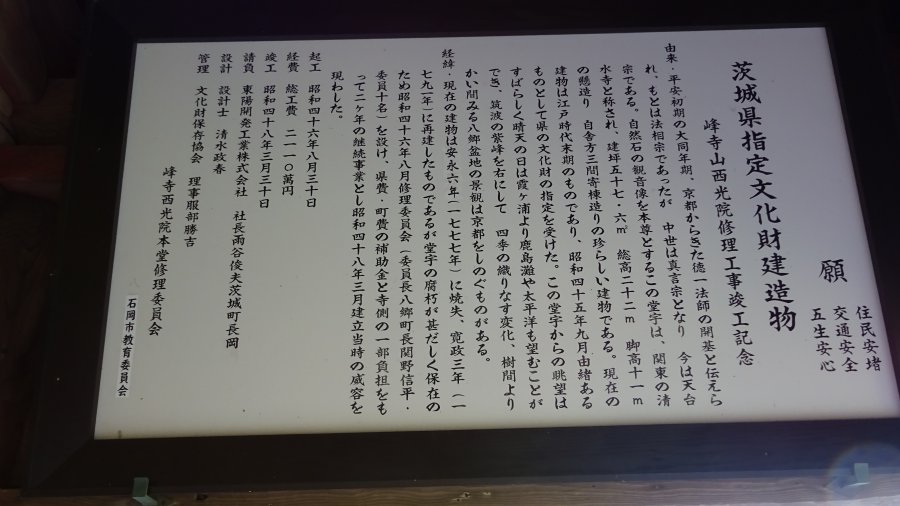 願
住民安堵
交通安全
五生安心
茨城県指定文化財建造物
峰寺山西光院修理工事竣工記念
由来・平安初期の大同年期、京都からきた徳一法師の開基と伝えら
れ、もとは法相宗であったが 中世は真言宗となり 今は天台
宗である。自然石の観音像を本尊とするこの堂宇は、関東の清
水寺と称され、建坪五十七・六㎡ 総高二十二m 脚高十一m
の懸造り 自舎方三間寄棟造りの珍らしい建物である。現在の
建物は江戸時代末期のものであり、昭和四十五年九月由緒ある
ものとして県の文化財の指定を受けた。この堂宇からの眺望は
すばらしく晴天の日は霞ヶ浦より鹿島灘や太平洋も望むことが
でき、筑波の紫峰を右にして 四季の織りなす変化、樹間より
かい間みる八郷盆地の景観は京都をしのぐものがある。
経緯・現在の建物は安永六年(一七七七年)に焼失、寛政三年(一
七九一年)に再建したものであるが堂宇の腐朽が甚だしく保在の
ため昭和四十六年八月修理委員会(委員長八郷町長関野信平・
委員十名)を設け、県費・町費の補助金と寺側の一部負担をも
って二ヶ年の継続事業とし昭和四十八年三月建立当時の威容を
現わした。
起工 昭和四十六年八月三十日
経費 総工費 二一一〇萬円
竣工 昭和四十八年三月三十日
請負 東陽開発工業株式会社 社長雨谷俊夫茨城町長岡
設計 設計士 清水政春
管理 文化財保存協会 理事服部勝吉
峰寺西光院本堂修理委員会
石岡市教育委員会